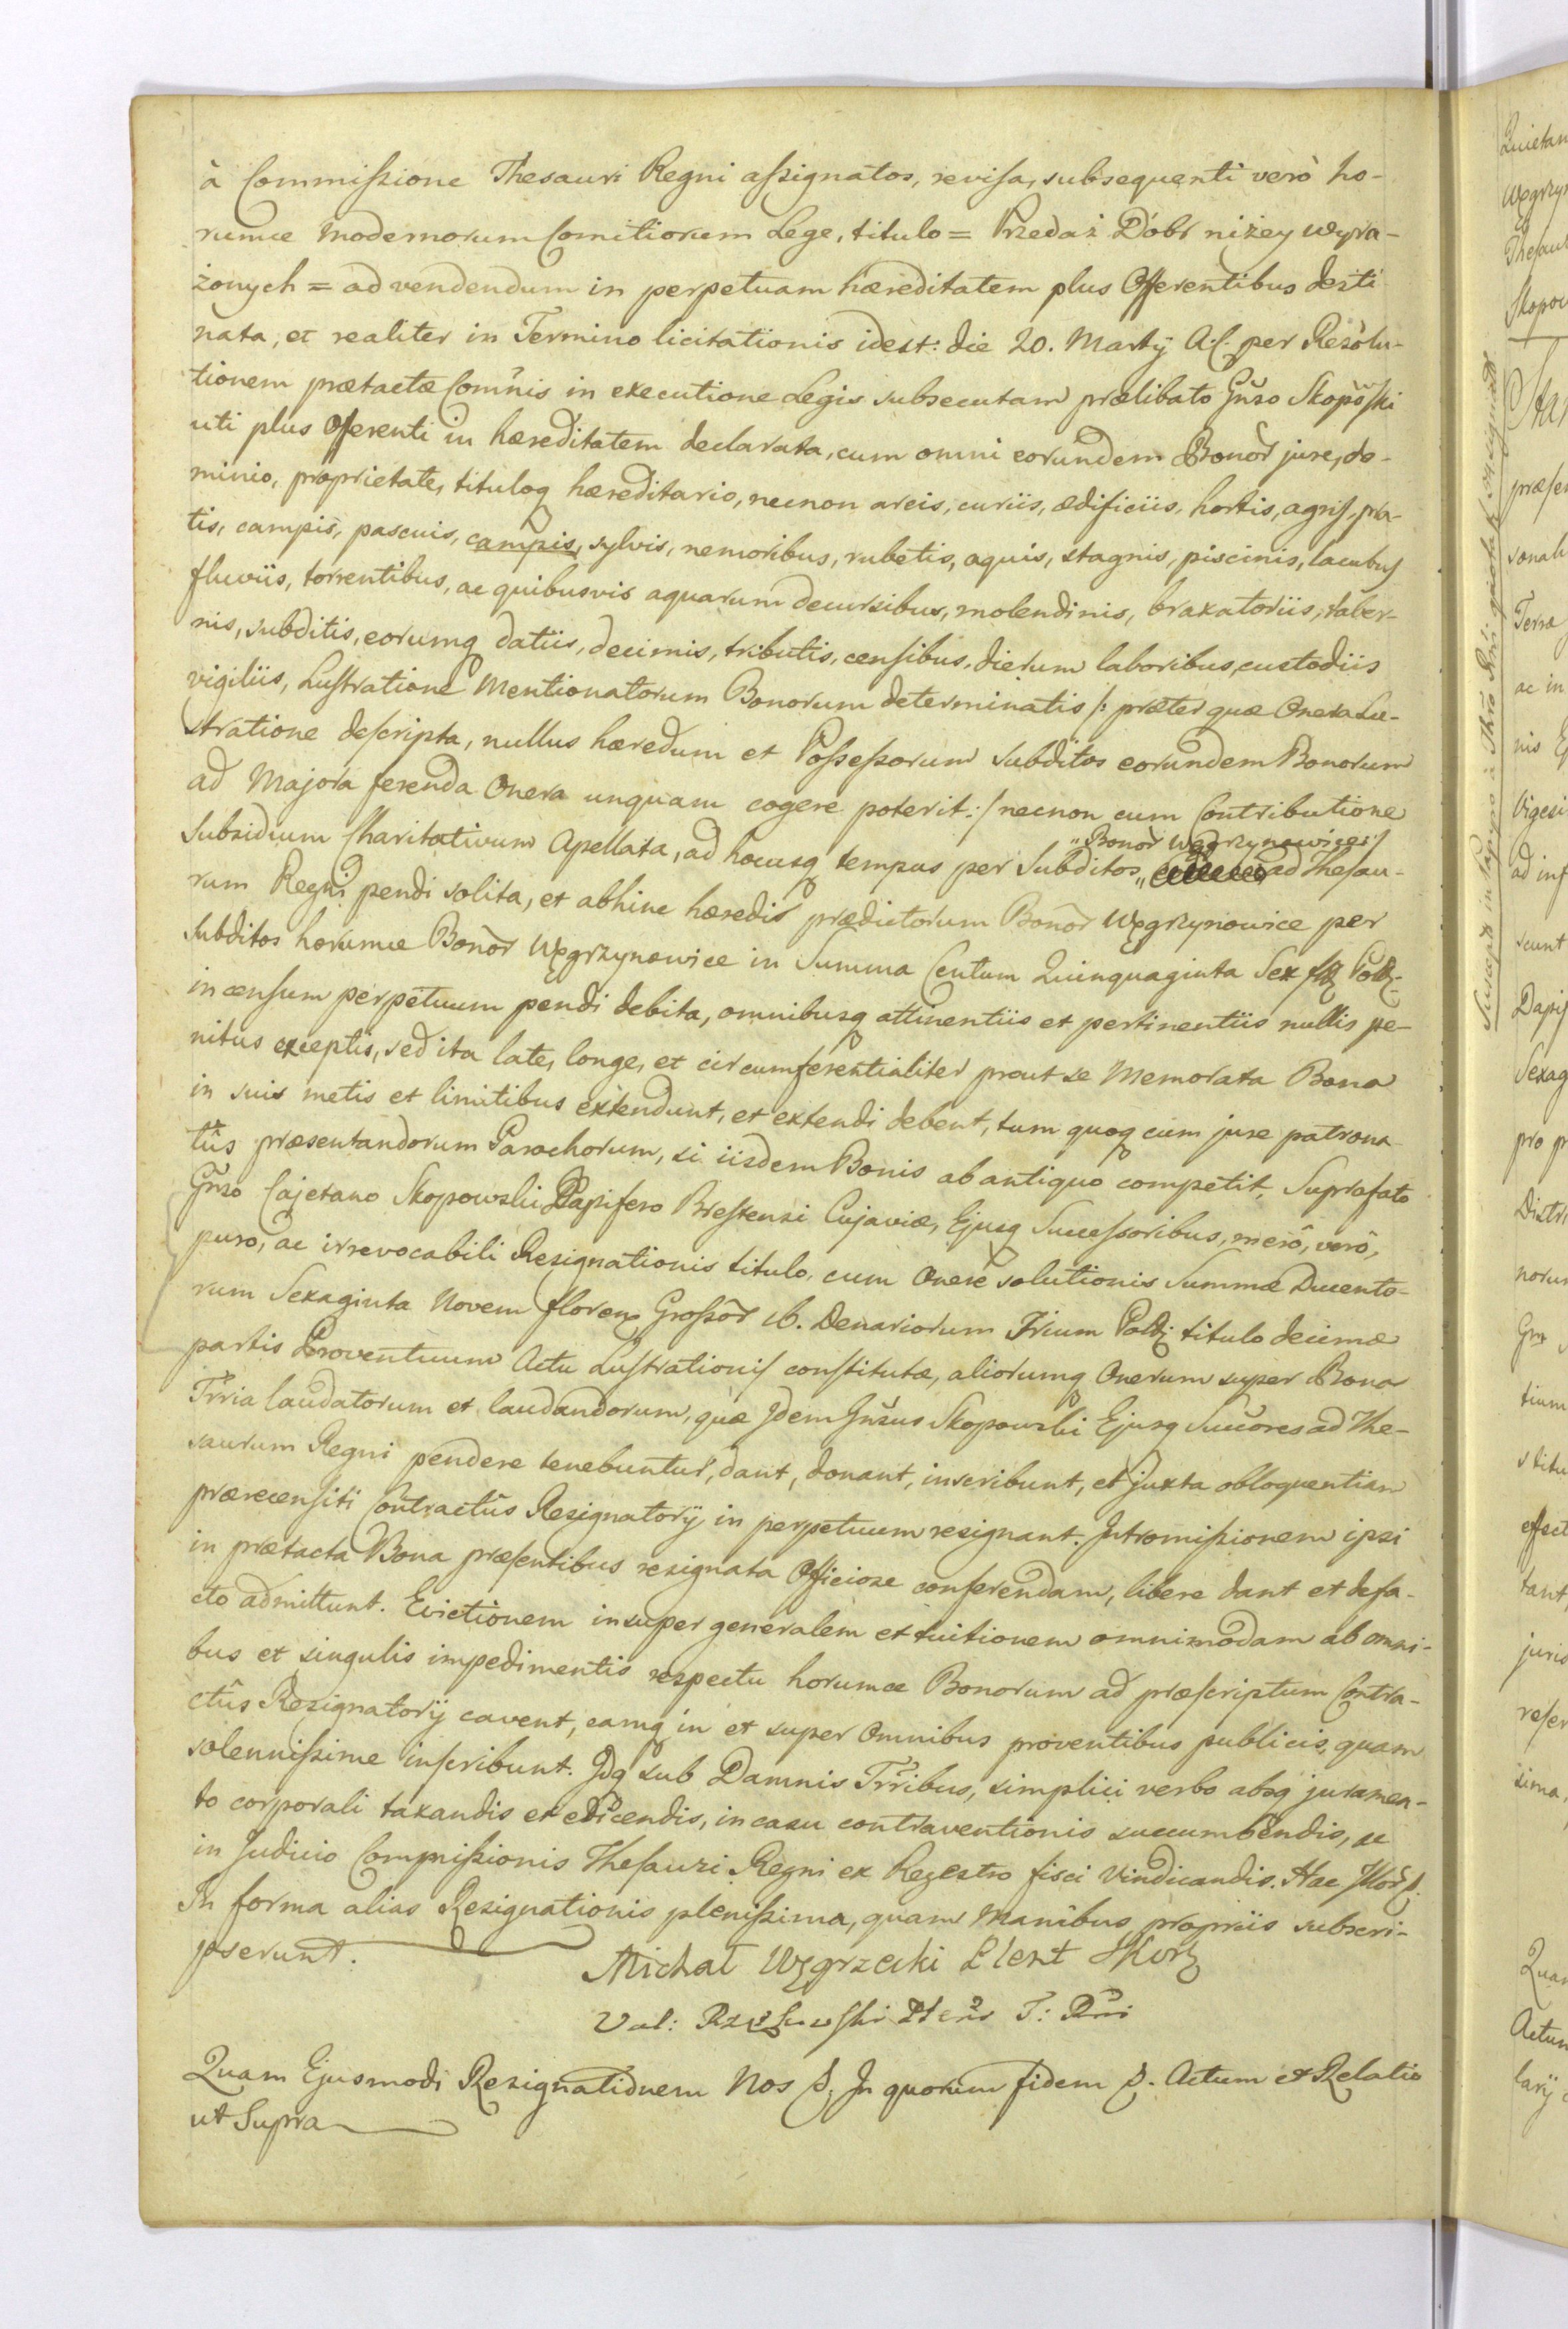 à Commissione Thesauri Regni assignatos, revisa, subsequenti verò ho-
rumce modernorum Comitiorum Lege, titulo = Przedaż Dóbr niżey wyra-
żonych = ad vendendum in perpetuam hæreditatem plus Offerentibus desti
nata, et realiter in Termino licitationis idest: die 20. Martÿ A. C. per Resolu-
tionem prætactæ Comñis in executione Legis subsecutam prælibato Gñso Skopõski
uti plus Offerenti in hæreditatem declarata, cum omni eorundem Bonor̃ jure, do-
minio, proprietate, tituloq hæreditario, necnon areis, curiis, ædificiis, hortis, agris, pra-
tis, campis, pascuis, campis, sylvis, nemoribus, rubetis, aquis, stagnis, piscinis, lacubus
fluviis, torrentibus, ac quibusvis aquarum decursibus, molendinis, braxatoriis, taber-
nis, subditis, eorumq datiis, decimis, tributis, censibus, dierum laboribus, custodiis
vigiliis, Lustratione Mentionatorum Bonorum determinatis /: præter quæ Onera Lu-
stratione descripta, nullus hæredum et Possessorum subditos eorundem Bonorum
ad Majora ferenda Onera unquam cogere poterit :/ necnon cum Contributione
"Bonor̃ Węgrzynowice"/
Subsidium Charitativum Apellata, ad hocusq tempus per Subditos " ad Thesau-
rum Regni pendi solita, et abhinc hæredis prædictorum Bonor̃ Węgrzynowice per
Subditos horumce Bonor̃ Węgrzynowice in Summa Centum Quinquaginta Sex flz Polz.
in censum perpetuum pendi debita, omnibusq attinentiis et pertinentiis nullis pe-
nitus exceptis, sed ita late, longe, et circumferentialiter prout se Memorata Bona
in suis metis et limitibus extendunt, et extendi debent, tum quoq cum jure patrona
tûs præsentandorum Parochorum, si iisdem Bonis ab antiquo competit, Suprafato
Gñso Cajetano Skopowski Dapifero Brestensi Cujaviæ, Ejusq Successoribus, merô, verô,
puro, ac irrevocabili Resignationis titulo, cum Onere solutionis Summæ Ducento-
rum Sexaginta Novem floren Grossor̃ 16. Denariorum Trium Polz. titulo decimæ
partis Proventuum Actu Lustrationis constitutæ, aliorumq Onerum super Bona
Trria laudatorum et laudandorum, quæ Idem Gñsus Skopowski Ejusq Succores ad The-
saurum Regni pendere tenebuntur, dant, donant, inscribunt, et juxta obloquentiam
prærecensiti Contractûs Resignatorÿ in perpetuum resignant. Intromissionem ipsi
in prætacta Bona præsentibus resignata Officiose conferendam, libere dant et defa-
cto admittunt. Evictionem insuper generalem et tuitionem omnimodam ab omni-
bus et singulis impedimentis respectu horumce Bonorum ad præscriptum Contra-
ctûs Resignatorÿ cavent, eamq in et super Omnibus proventibus publicis, quam
solennissime inscribunt. Idq sub Damnis Trribus, simplici verbo absq juramen-
to corporali taxandis et edicendis, in casu contraventionis succumbendis, ac
in Judicio Commissionis Thesauri Regni ex Regestro fisci vindicandis. Hac
In forma alias Resignationis plenissima, quam manibus propriis subscri-
pserunt.
Michał Węgrzecki
Val:
Quam Ejusmodi Resignationem Nos In quorum fidem Actum et Relatio
ut Supra